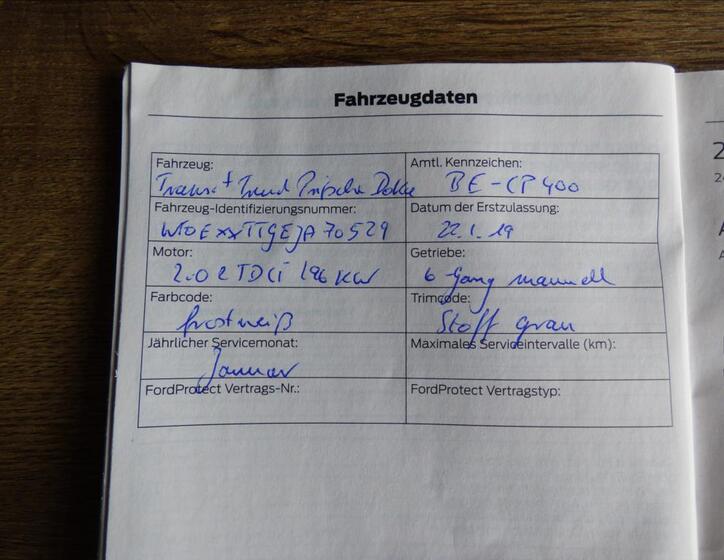 Fahrzeugdaten
Fahrzeug: Amtl. Kennzeichen:
Transit Trend Pritsche Doka BE-CP 400
Fahrzeug-Identifizierungsnummer: Datum der Erstzulassung:
WF0EXXTTGEJA70529 22.1.19
Motor: Getriebe:
2.0 l TDCi KW 6 Gang manuell
Farbcode: Trimcode:
frostweiß Stoff grau
Jährlicher Servicemonat: Maximales Serviceintervalle (km):
Januar
FordProtect Vertrags-Nr.: FordProtect Vertragstyp:
2